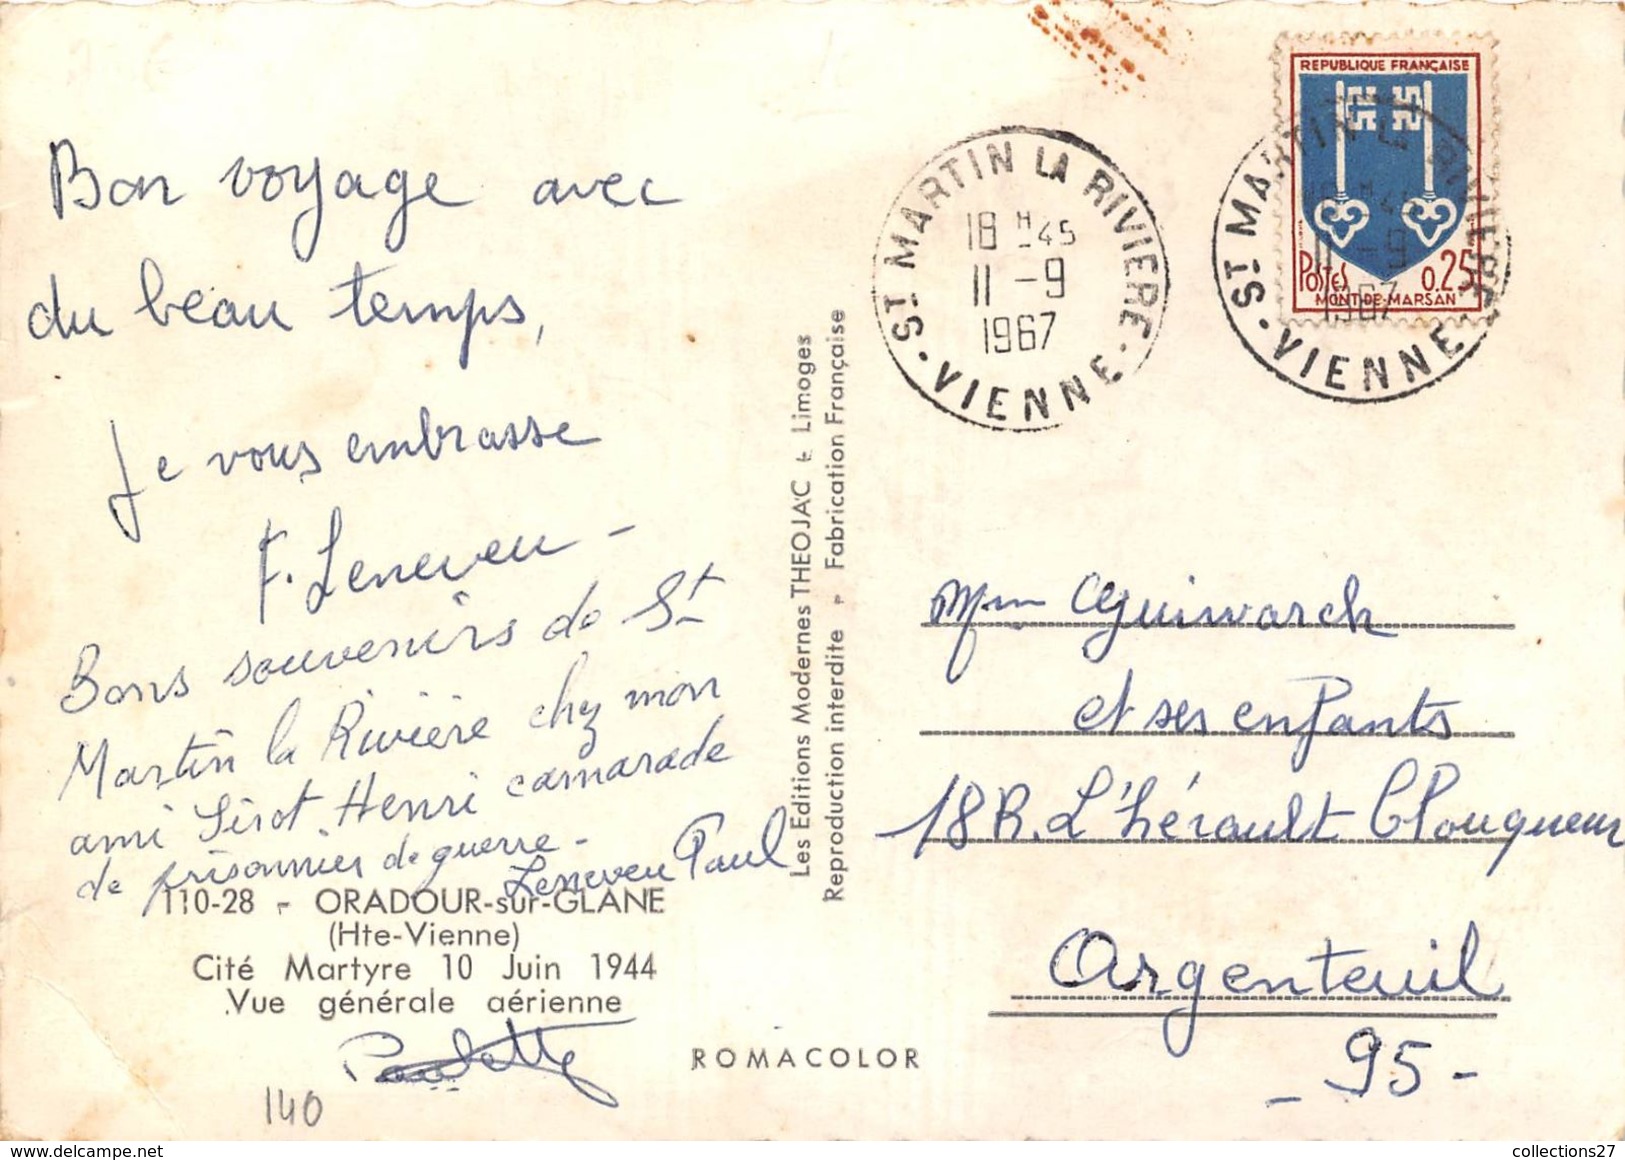 Bon voyage avec
du beau temps,
Je vous embrasse
F. Leneveu -
Bons souvenirs de St
Martin la Rivière chez mon
ami Sirot Henri camarade
de prisonnier de guerre -
Leneveu Paul
110-28 - ORADOUR-sur-GLANE
(Hte-Vienne)
Cité Martyre 10 Juin 1944
Vue générale aérienne
Paulette
140
Les Editions Modernes THEOJAC - Limoges
Reproduction interdite - Fabrication Française
ROMACOLOR
ST MARTIN LA RIVIERE
18 H 45
11 - 9
1967
- VIENNE -
REPUBLIQUE FRANÇAISE
POSTES 0.25
MONT-DE-MARSAN
ST MARTIN LA RIVIERE
18 H 45
11 - 9
1967
- VIENNE -
Mme Guiwarch
et ses enfants
18 R. L'hérault
Argenteuil
- 95 -
collections27